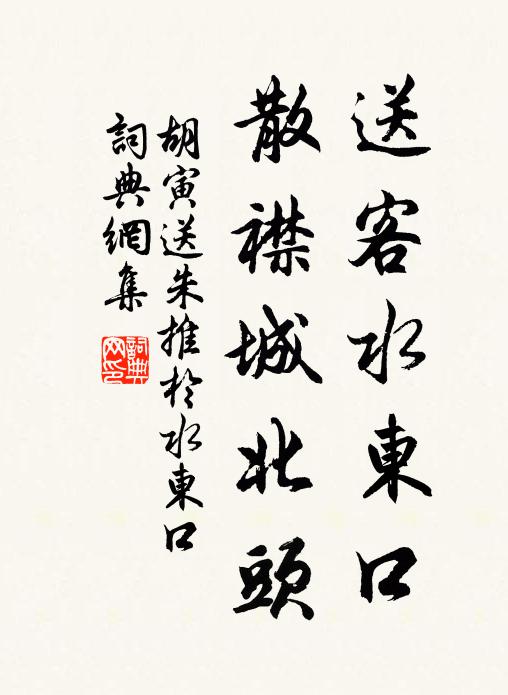 送客水東口
散襟城北頭
胡寅送朱推於水東口
詞典網集
詞典網印